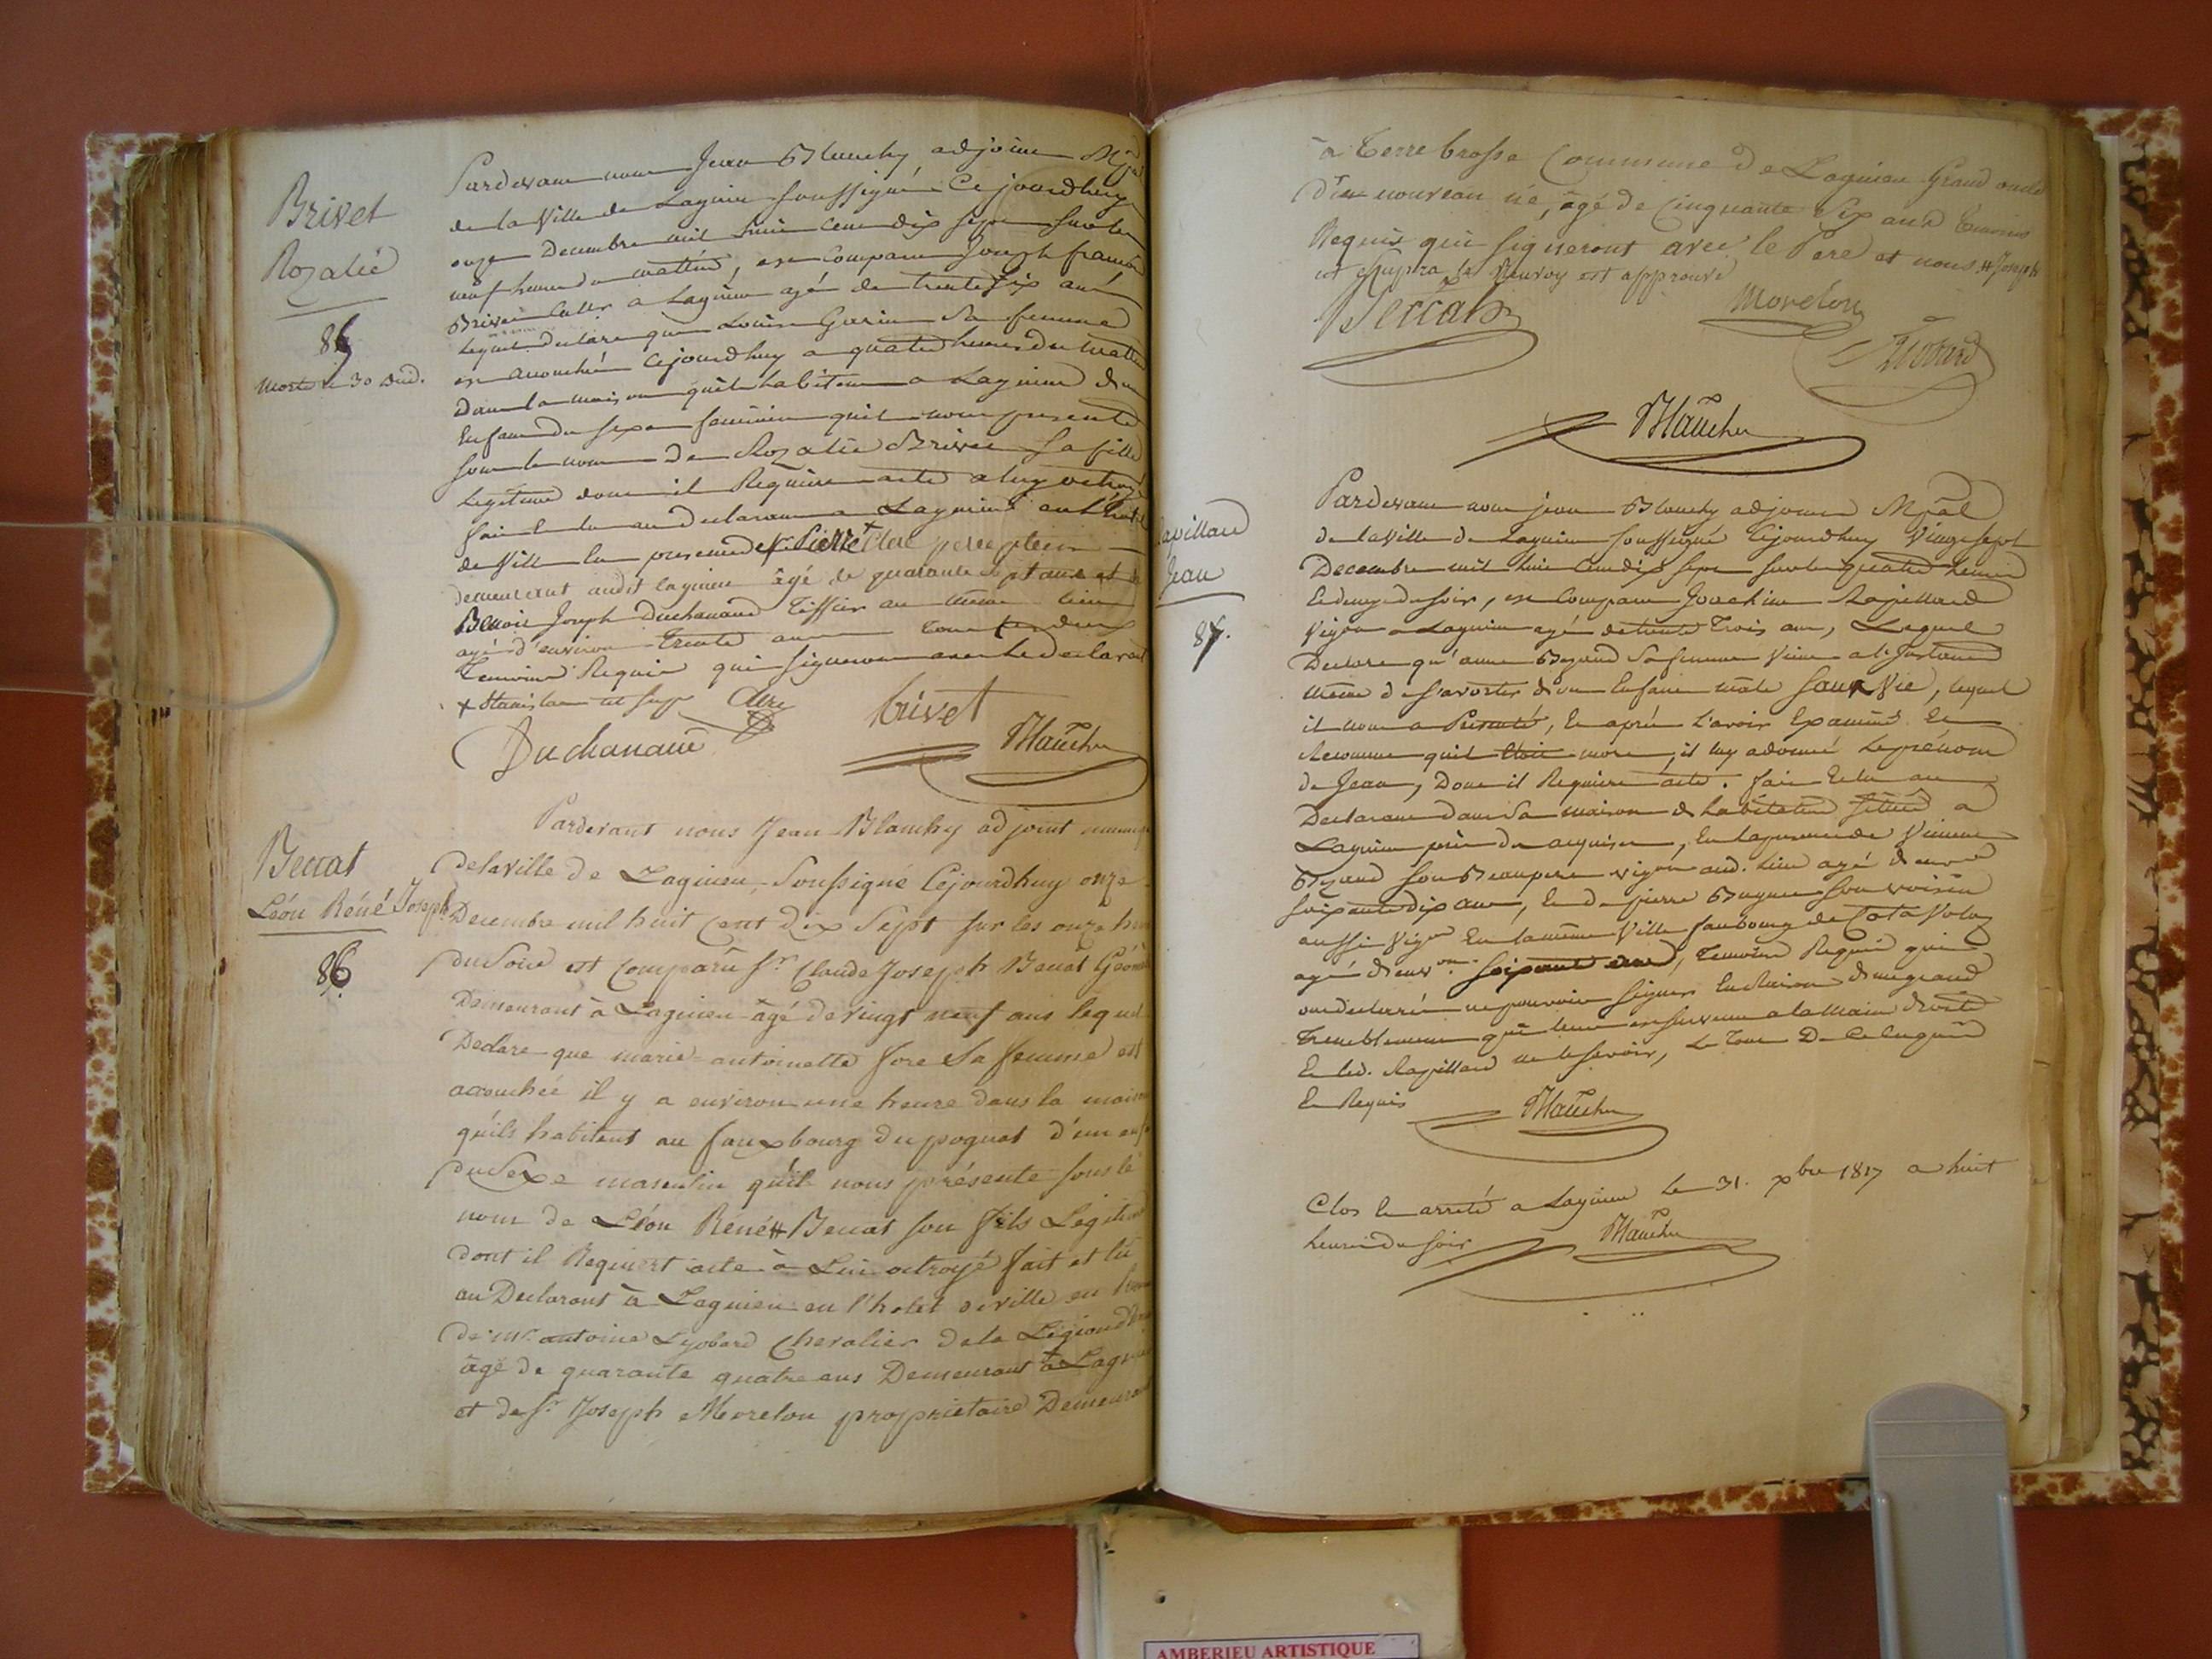 Brivet
Rozalie
85
morte le 30 Aud.
Pardevant nous Jean Blanchy adjoint Mpal
de la Ville de Lagnieu soussigné Ce jourdhuy
onze Decembre mil huit cent dix sept sur les
neuf heures du mattin, est comparu Joseph francois
Brivet a Lagnieu agé de trente six ans
Lequel declare que Louise Garin Sa femme
est accouchée Cejourdhuy a quatre heures du mattin
Dans la maison qu'ils habitent a Lagnieu d'un
Enfant du sexe feminin quil nous presente
sous le nom de Rozalie Brivet Sa fille
Legitime dont il Requiert acte a luy octroyé
fait & lu au declarant a Lagnieu en l'hotel
de Ville en presence de Sr. Pierre + Clerc percepteur
demeurant audit lagnieu âgé de quarante sept ans et de
Benoit Joseph Duchanaud Tissier au même lieu
agé d'environ trente ans tous les deux
Temoins Requis qui signeront avec le declarant
+ Stanislas ut supr Clerc brivet
Duchanaud Blanchy
Beccat
Léon Réné Joseph
86
Pardevant nous Jean Blanchy adjoint municip
de la ville de Lagnieu, Soussigné Cejourdhuy onze
Decembre mil huit cent dix Sept sur les onze heu
du Soir est comparu Sr. Claude Joseph Beccat Géomè
Demeurant à Lagnieu âgé de vingt neuf ans lequel
Declare que marie-antoinette fore Sa femme est
accouchée il y a environ une heure dans la maison
qu'ils habitent au fauxbourg du pognat d'un enf
du Sexe masculin qu'il nous présente sous le
nom de Léon Réné # Beccat son fils Legitime
dont il Requiert acte à Lui octroyé fait et lu
au Declarant à Lagnieu en l'hotel de ville en
de mr. antoine Lyobard Chevalier de la Légion d'hon
âgé de quarante quatre ans Demeurant à Lagnieu
et de Sr. Joseph Morelon propriétaire Demeurant
à Terre brosse Commune de Lagnieu Grand oncle
Du nouveau né, âgé de Cinquante Six ans Temoins
Requis qui signeront avec le Pere et nous # Joseph
ut Supra le Renvoy est approuvé
Beccat Morelon
Lyobard
Blanchy
Rapillard
Jean
87.
Pardevant nous jean Blanchy adjoint Mpal
de la Ville de Lagnieu soussigné Cejourdhuy Vingt sept
Decembre mil huit cent dix sept sur les quatre heures
& demy du soir, est comparu Joachim Rapillard
Vigon a Lagnieu agé de trente Trois ans, Lequel
Declare qu'anne Bezand Sa femme Vient a l'Instant
même de s'avorter d'un Enfant mâle sans Vie, lequel
il nous a Présenté, & après l'avoir Examiné &
Reconnu quil étoit mort, il luy a donné le prénom
de Jean, Dont il Requiert acte. fait & lu au
Declarant dans Sa maison d'habitation située a
Lagnieu, En la presence de Vincent
Bezand son Beaupere vigon aud. Lieu agé d'environ
soixante dix ans, & de pierre Bugnet son voisin
aussi Vigon En la même Ville faubourg de
agé d'envon. soixante ans, Temoins Requis qui
ont declaré ne pouvoir signer En Raison d'un grand
tremblement qui leur est survenu a la main droite
& led. Rapillard ne le savoir, Le Tout De Ce Enquis
& Requis Blanchy
Clos & arreté a Lagnieu le 31. xbre 1817 a huit
heures du soir Blanchy
AMBERIEU ARTISTIQUE